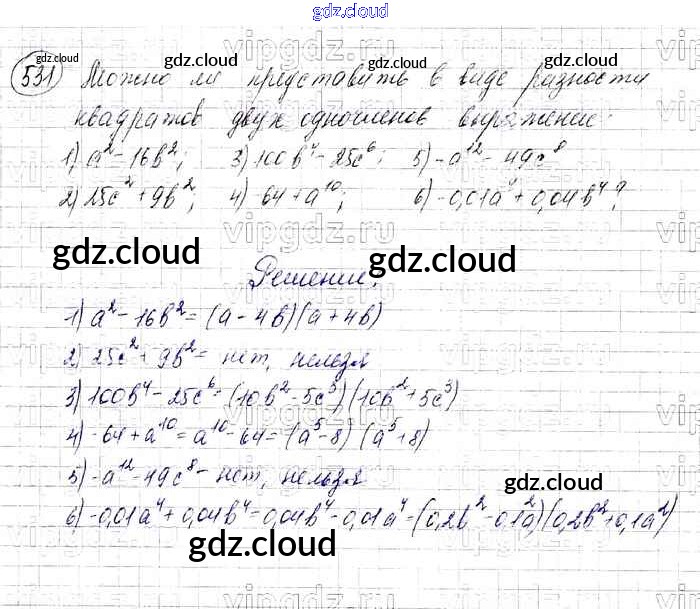 gdz.cloud
531 Можно ли представить в виде разности
квадратов двух одночленов выражение:
1) a² - 16b²; 3) 100b⁴ - 25c⁶; 5) -a¹² - 49c⁸
2) 25c² + 9b²; 4) -64 + a¹⁰; 6) -0,01a⁴ + 0,04b⁴?
Решение.
1) a² - 16b² = (a - 4b)(a + 4b)
2) 25c² + 9b² = нет, нельзя
3) 100b⁴ - 25c⁶ = (10b² - 5c³)(10b² + 5c³)
4) -64 + a¹⁰ = a¹⁰ - 64 = (a⁵ - 8)(a⁵ + 8)
5) -a¹² - 49c⁸ - нет, нельзя
6) -0,01a⁴ + 0,04b⁴ = 0,04b⁴ - 0,01a⁴ = (0,2b² - 0,1a²)(0,2b² + 0,1a²)
gdz.cloud